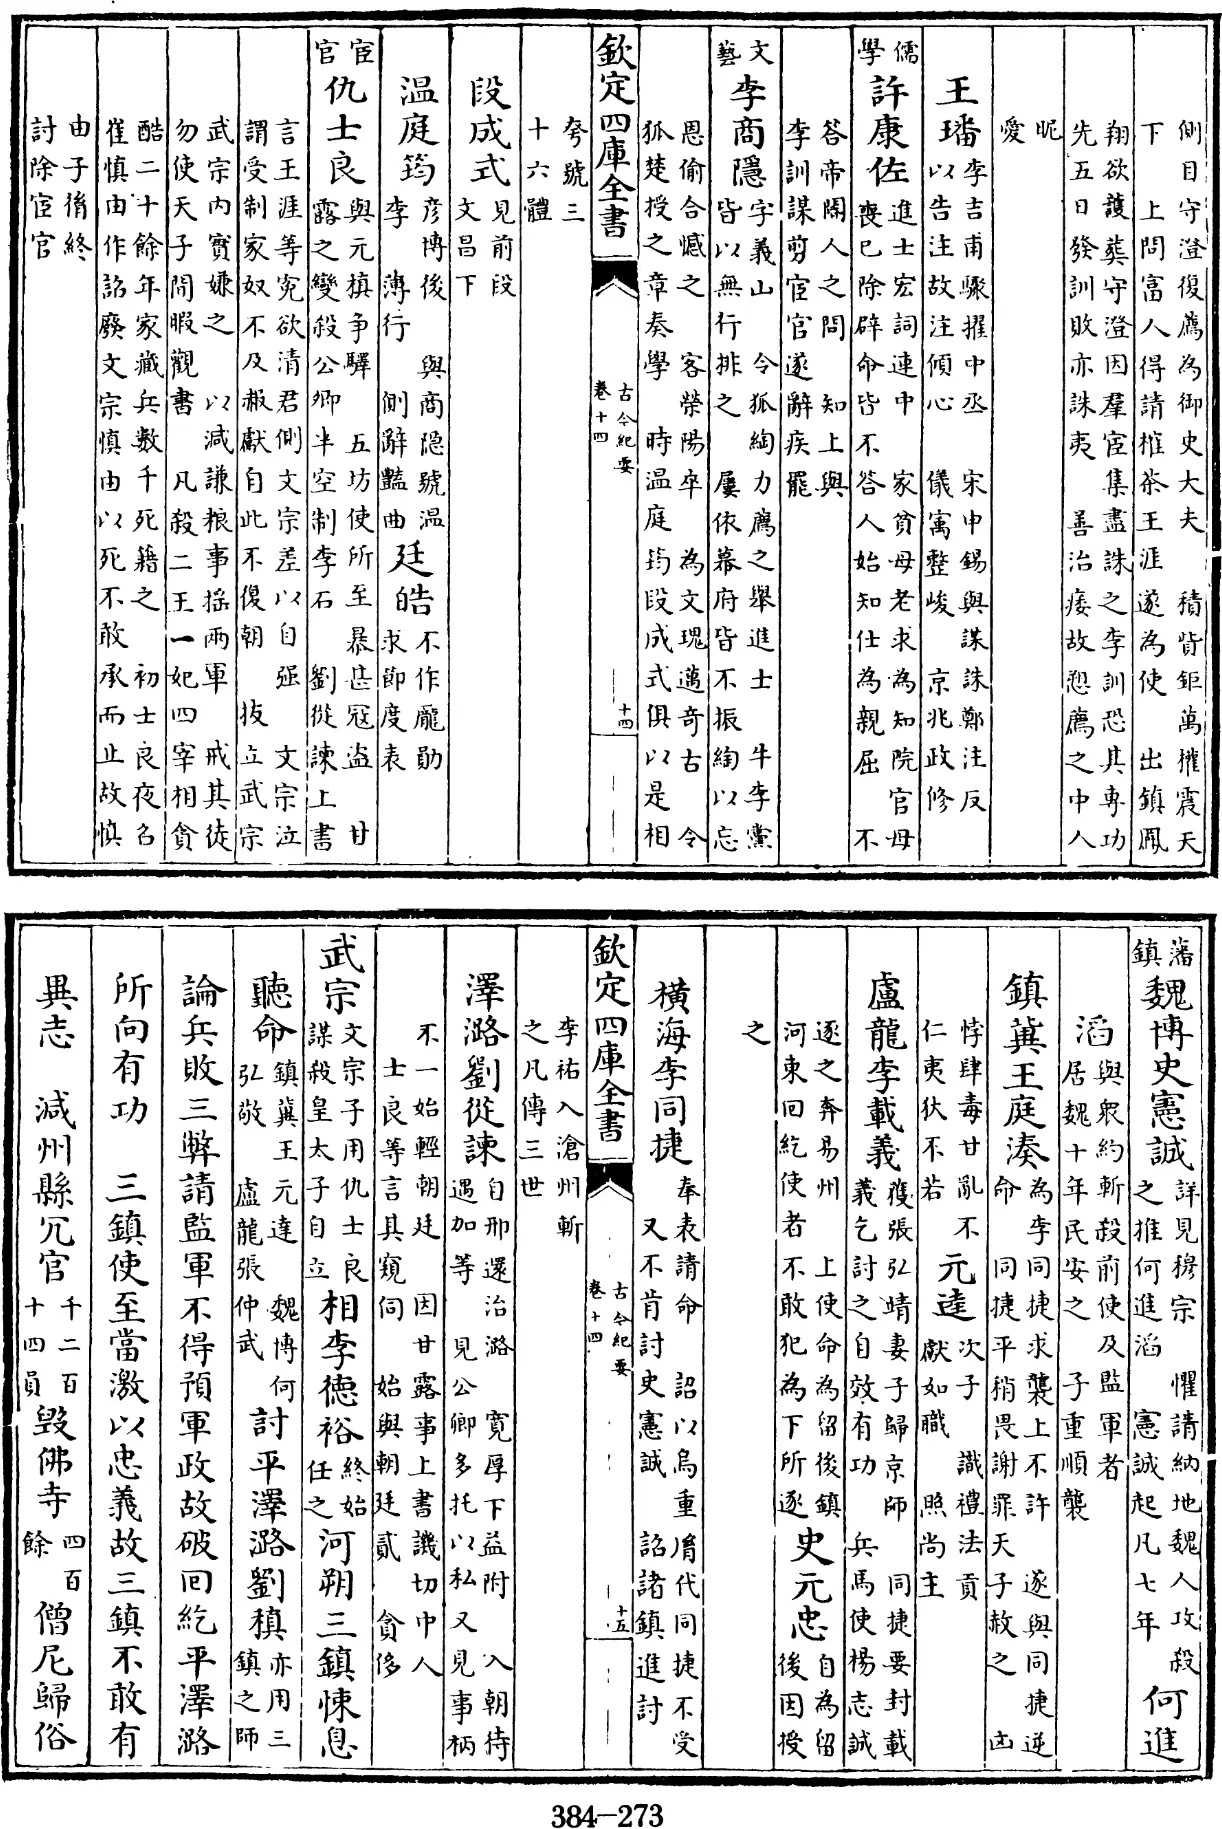 側目守澄復薦為御史大夫 積貲鉅萬搉震天
下 上問富人得請榷茶王涯遂為使 出鎮鳳
翔欲護葬守澄因羣宦集盡誅之李訓恐其專功
先五日發訓敗亦誅夷 善治痿故愬薦之中人
昵
愛
王璠 李吉甫驟擢中丞 宋申錫與謀誅鄭注反
以告注故注傾心 儀寓整峻 京兆政修
儒學 許康佐 進士宏詞連中 家貧母老求為知院官母
喪已除辟命皆不答人始知仕為親屈 不
答帝閽人之問 知上與
李訓謀剪宦官遂辭疾罷
文藝 李商隱 字義山 令狐綯力薦之舉進士 牛李黨
皆以無行排之 屢依幕府皆不振綯以忘
恩偷合憾之 客榮陽卒 為文瑰邁奇古 令
狐楚授之章奏學 時温庭筠段成式俱以是相
欽定四庫全書
古今紀要
卷十四
十四
夸號三
十六體
段成式 見前段
文昌下
温庭筠 彦博後 與商隐號温
李 薄行 側辭豔曲 廷皓 不作龎勛
求節度表
宦官 仇士良 與元稹争驛 五坊使所至暴甚冦盗 甘
露之變殺公卿半空制李石 劉從諫上書
言王涯等寃欲清君側文宗差以自强 文宗泣
謂受制家奴不及赧獻自此不復朝 拔立武宗
武宗内實嫌之 以减謙粮事揺兩軍 戒其徒
勿使天子閒暇觀書 凡殺二王一妃四宰相貪
酷二十餘年家藏兵數千死籍之 初士良夜召
崔慎由作詔廢文宗慎由以死不敢承而止故慎
由子後終
討除宦官
藩鎮 魏博史憲誠 詳見穆宗 懼請納地魏人攻殺
之推何進滔 憲誠起凡七年 何進
滔 與衆約斬殺前使及監軍者
居魏十年民安之 子重順襲
鎮冀王庭湊 為李同捷求襲上不許 遂與同捷逆
命 同捷平稍畏謝罪天子赦之 凶
悖肆毒甘亂不
仁夷狄不若 元逵 次子 識禮法貢
獻如職 照尚主
盧龍李載義 獲張弘靖妻子歸京師 同捷要封載
義乞討之自效有功 兵馬使楊志誠
逐之奔易州 上使命為留後鎮
河東回紇使者不敢犯為下所逐 史元忠 自為留
後因授
之
横海李同捷 奉表請命 詔以烏重𦙍代同捷不受
又不肯討史憲誠 詔諸鎮進討
欽定四庫全書
古今紀要
卷十四
十五
李祐入滄州斬
之凡傳三世
澤潞劉從諫 自邢還治潞 寛厚下益附 入朝待
遇加等 見公卿多托以私又見事柄
不一始輕朝廷 因甘露事上書譏切中人
士良等言其窺伺 始與朝廷貳 貪侈
武宗 文宗子用仇士良
謀殺皇太子自立 相李德裕 終始
任之 河朔三鎮悚息
聽命 鎮冀王元逵 魏博何
弘敬 盧龍張仲武 討平澤潞劉稹 亦用三
鎮之師
論兵敗三弊請監軍不得預軍政故破回紇平澤潞
所向有功 三鎮使至當激以忠義故三鎮不敢有
異志 減州縣冗官 千二百
十四員 毁佛寺 四百
餘 僧尼歸俗
384-273